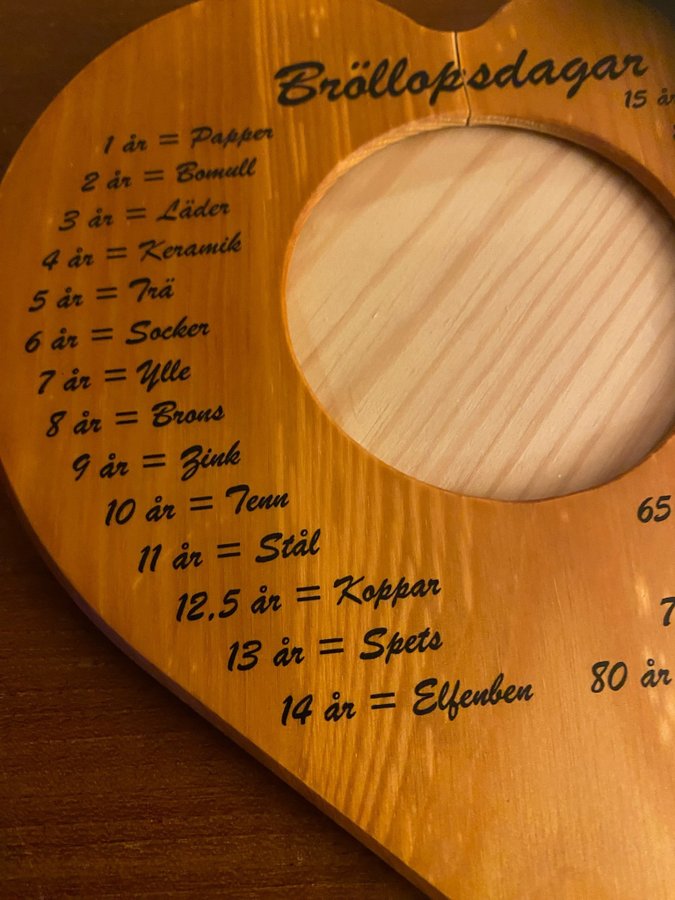 Bröllopsdagar
1 år = Papper
2 år = Bomull
3 år = Läder
4 år = Keramik
5 år = Trä
6 år = Socker
7 år = Ylle
8 år = Brons
9 år = Zink
10 år = Tenn
11 år = Stål
12,5 år = Koppar
13 år = Spets
14 år = Elfenben
15 år
65
7
80 år